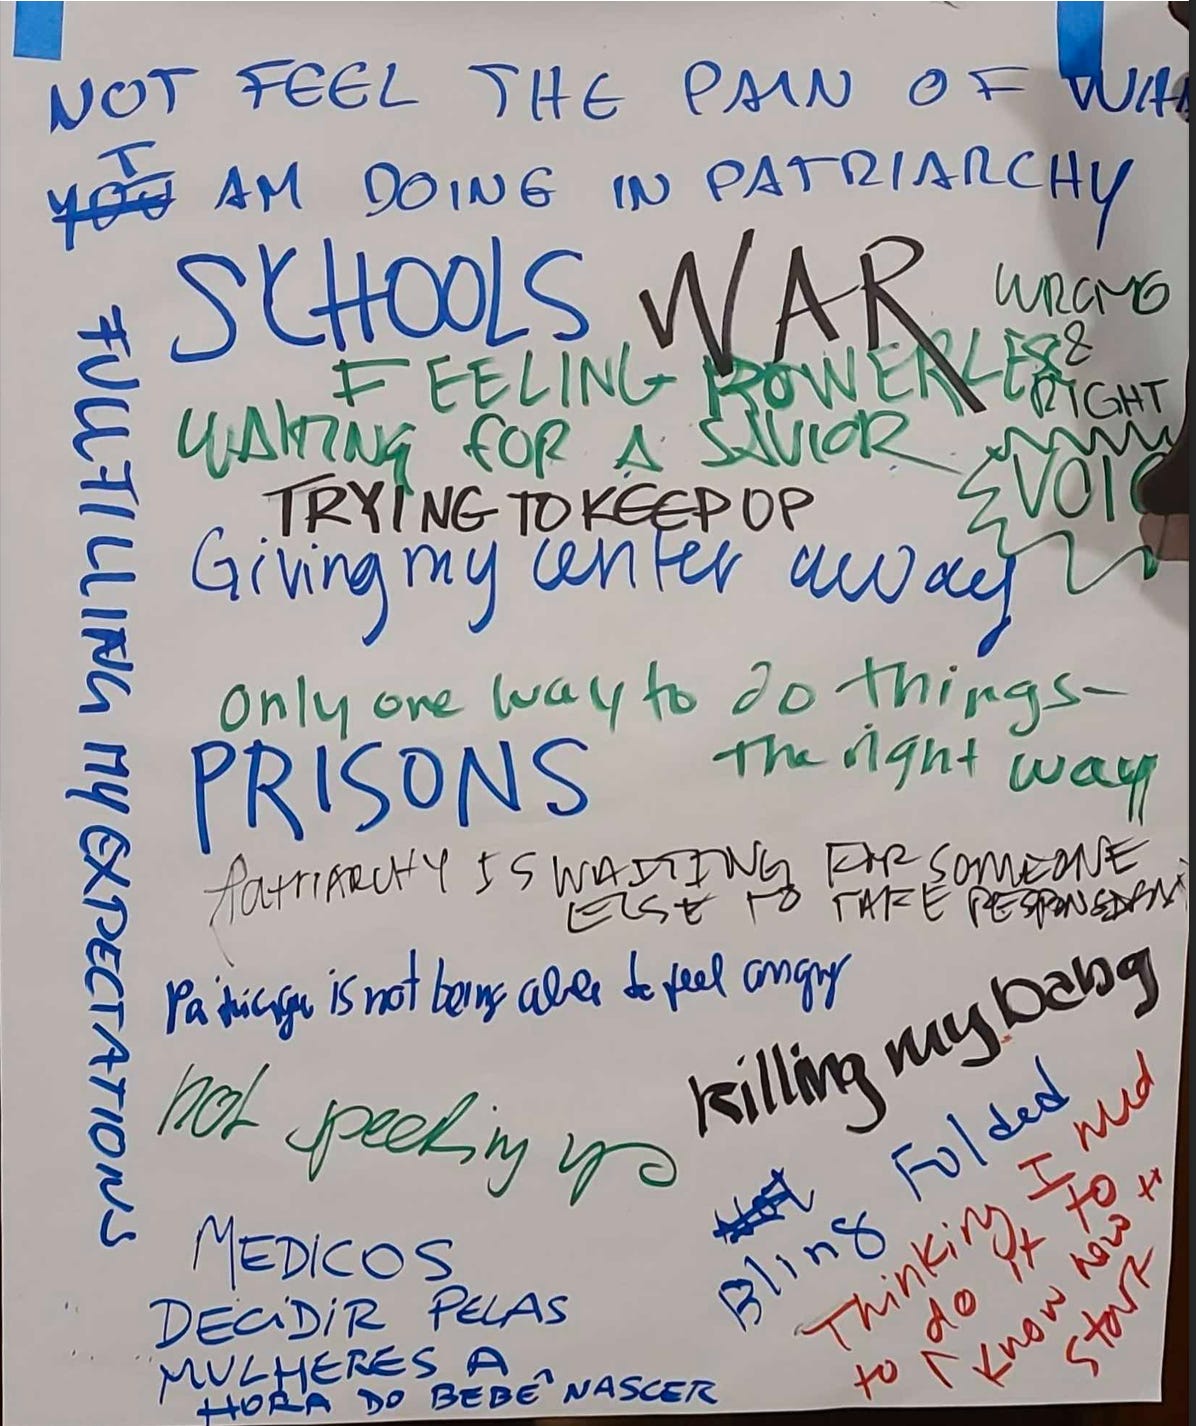 NOT FEEL THE PAIN OF WHA
I
YOU AM DOING IN PATRIARCHY
SCHOOLS WAR
WRONG
&
RIGHT
FEELING POWERLESS
WAITING FOR A SAVIOR
VOIC
TRYING TO KEEP UP
Giving my center away
FULFILLING MY EXPECTATIONS
only one way to do things-
the right way
PRISONS
PATRIARCHY IS WAITING FOR SOMEONE
ELSE TO TAKE
is not being able to feel angry
killing my bang
not speeking up
NOT
Bling Folded
Thinking I need
to do it to
know how to
start
MEDICOS
DECIDIR PELAS
MULHERES A
HORA DO BEBÊ NASCER